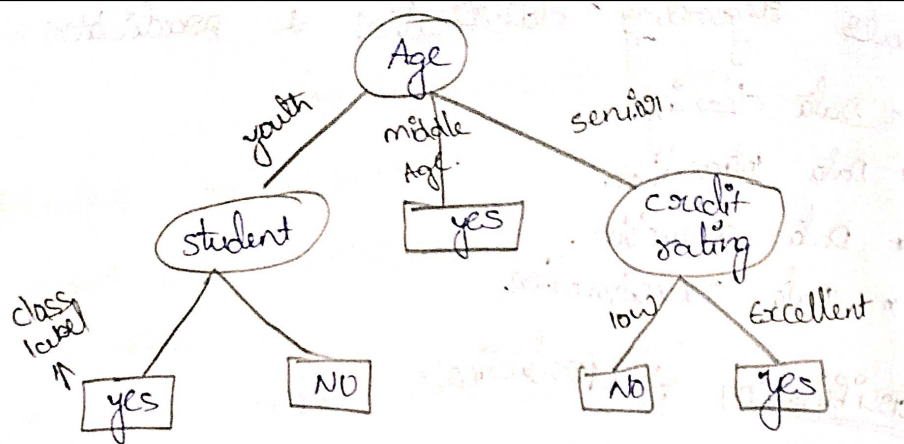 Age
youth
middle
Age.
senior
student
yes
credit
rating
class
label
low
Excellent
yes
NO
NO
yes